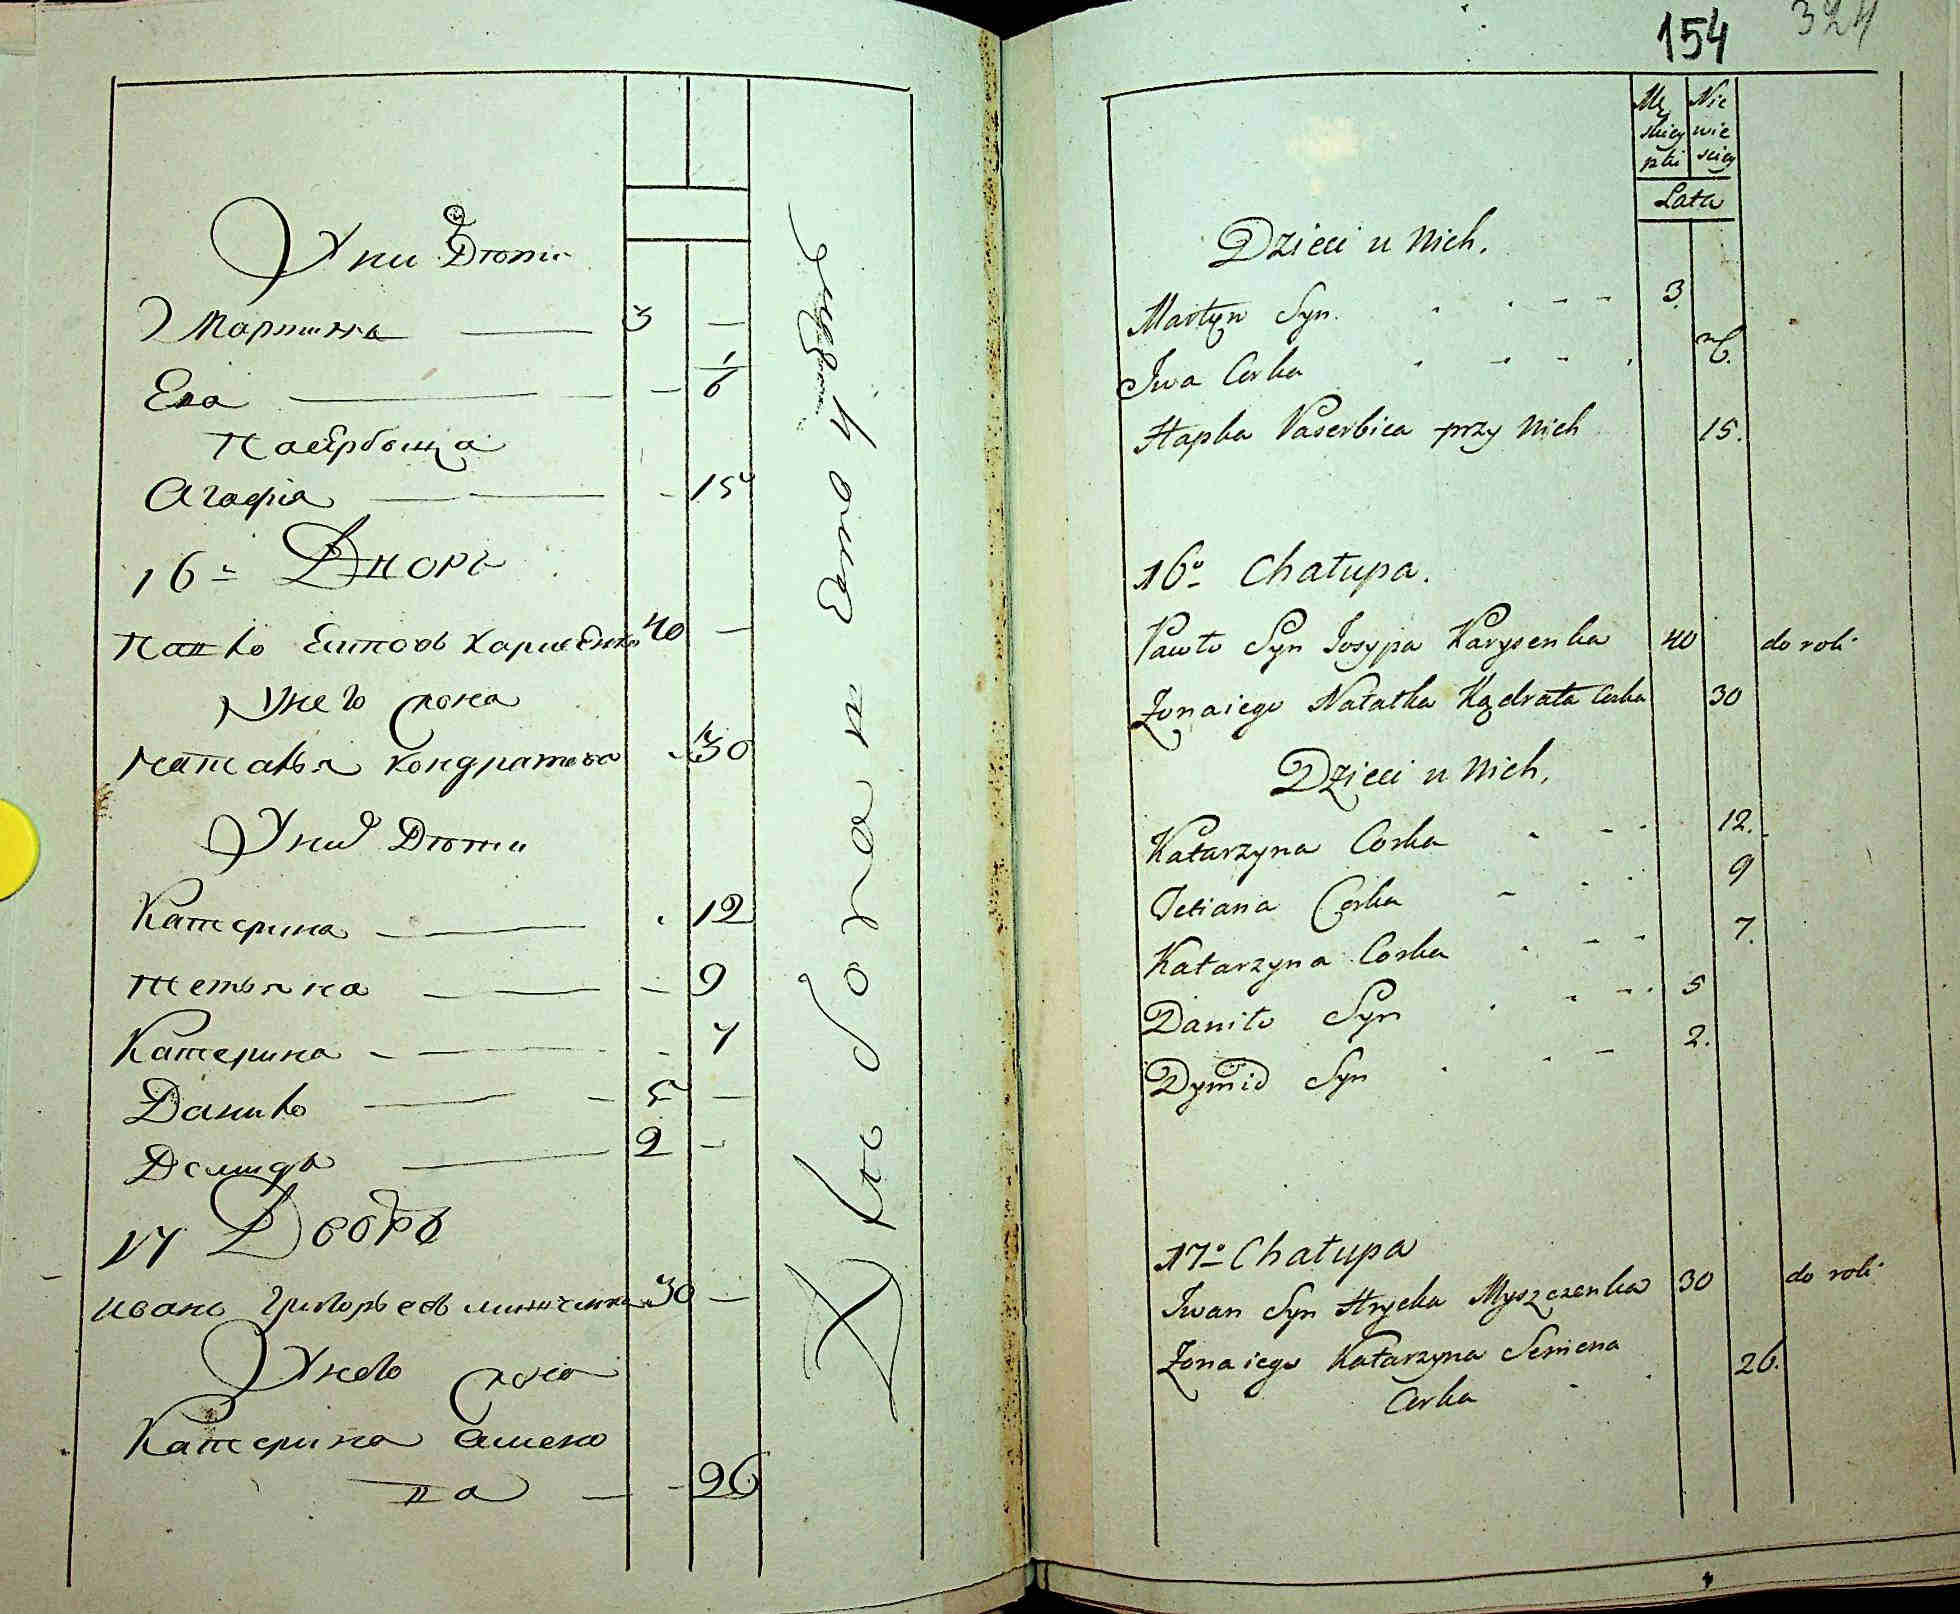 У ни Дѣти
Мартинъ 3 —
Ева — 1/6
Паѣрбыца
Агафія — 15
16 Дворъ
Павло Еситовъ Харисенко 40 —
У него жена
Наталья Кондратьева 30
У них Дѣти
Катерина 12
Тетьяна — 9
Катерина — 7
Данило — 5 —
Демидъ 2 —
17 Дворъ
Иванъ Григорьевъ 30 —
У него жена
Катерина Семено
ва — 26
154
324
Mę Nie
skiey wie
płci sciey
Lata
Dzieci u Nich.
Martyn Syn 3.
Iwa Corka 1/6.
Hapka Paserbica przy Nich 15.
16o Chałupa.
Pawło Syn Josypa Karysenka 40 do roli
Zona iego Natałka Kądrata Corka 30
Dzieci u Nich.
Katarzyna Corka 12.
Tetiana Corka 9
Katarzyna Corka 7.
Daniło Syn 5
Dymid Syn 2.
17o Chałupa
Iwan Syn Hrycka Myszczenka 30 do roli
Zona iego Katarzyna Semena 26.
Corka